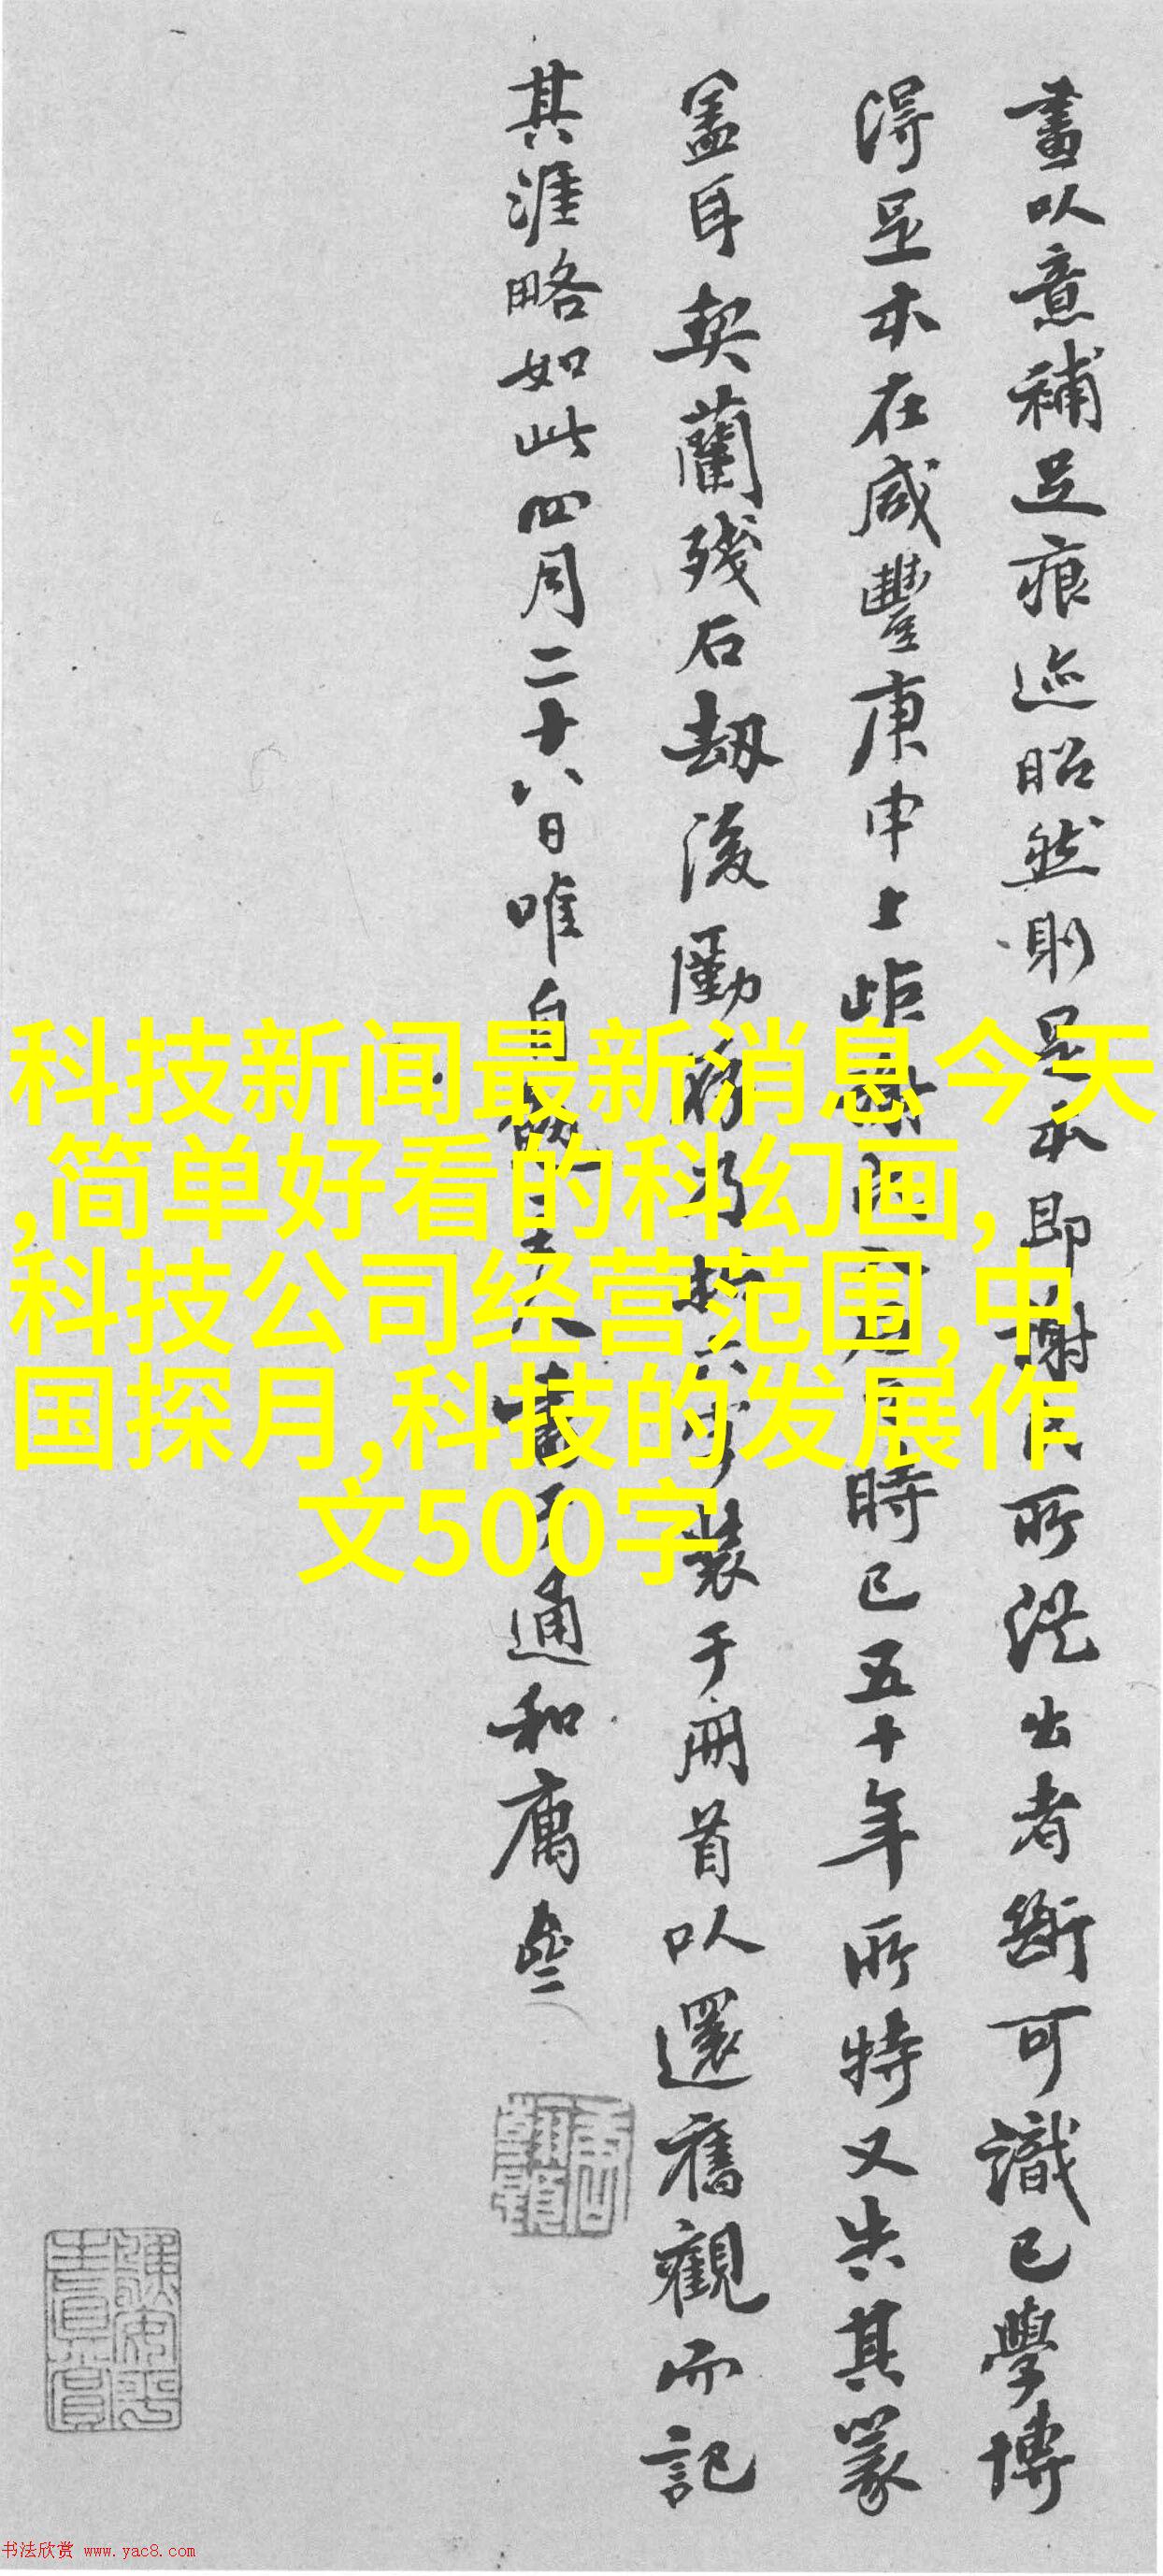 畫以意補足痕迹昭然則是本即謝氏所從出者斷可識已學博
得足本在咸豐庚申上岠時已五十年所特又失其篆
盖耳契蘭残石劫後勤將裝于冊首以還舊觀而記
其涯略如此四月二十八日唯自人書于通和庽
科技新闻最新消息今天
,简单好看的科幻画,
科技公司经营范围,中
国探月,科技的发展作
文500字
书法欣赏 www.yac8.com